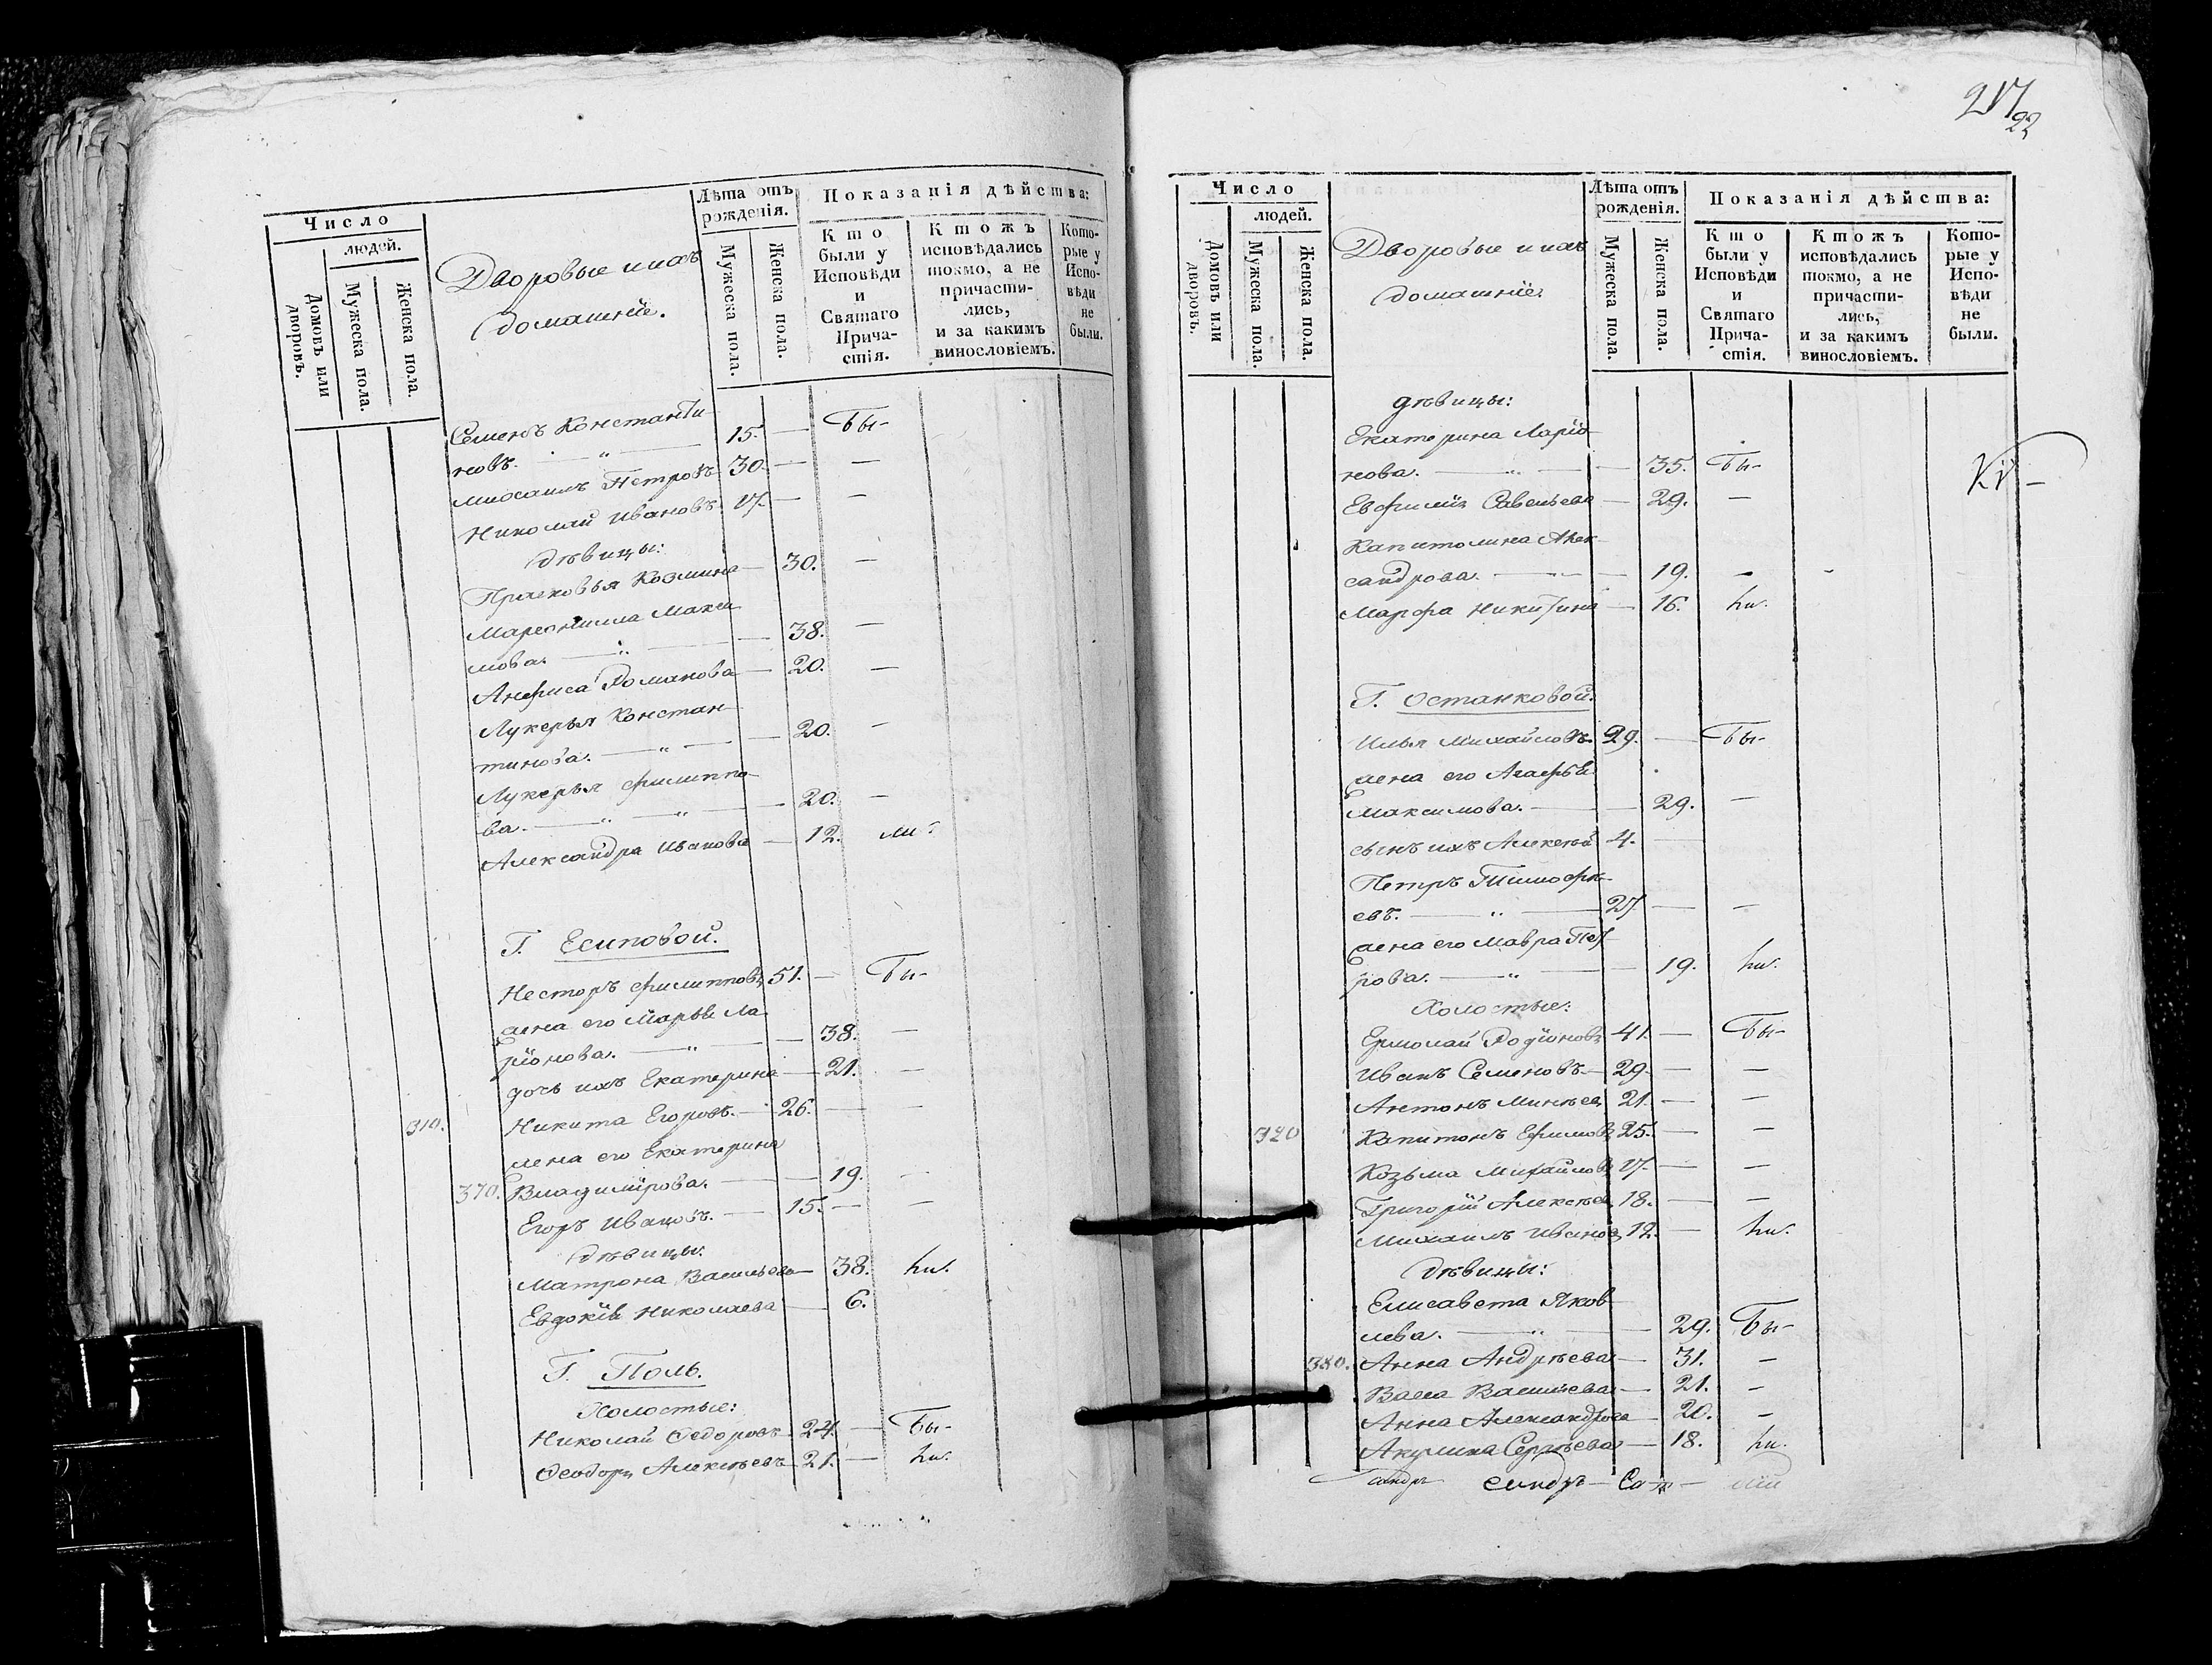 Число
людей.
Домовъ или дворовъ.
Мужеска пола.
Женска пола.
Дворовые и ихъ
домашніе.
Лѣта отъ рожденія.
Мужеска пола.
Женска пола.
Показанія дѣйства:
Кто были у Исповѣди и Святаго Прича-стія.
Ктожъ исповѣдались токмо, а не причасти-лись, и за какимъ винословіемъ.
Кото-рые у Испо-вѣди не были.
Семенъ Константи
новъ. — „ — 15. — Бы-
Михаилъ Петровъ 30. — —
Николай Ивановъ 17. — —
дѣвицы:
Прасковья Козмина — 30. —
Мареміяна Макси
мова. — „ — 38. —
Анфиса Романова — 20. —
Лукерья Констан
тинова. — „ — 20. —
Лукерья Филиппо
ва. — „ — 20. —
Александра Иванова — 12. ли.
Г. Есиповой.
Несторъ Филипповъ 51. — Бы-
жена его Марья Ла
ріонова. — „ — 38. —
дочь ихъ Екатерина — 21. —
310. Никита Егоровъ. — 26. — —
жена его Екатерина
370. Владимірова. — 19. —
Егоръ Ивановъ. — 15. — —
дѣвицы:
Матрона Васильева — 38. ли.
Евдокія Николаева — 6.
Г. Поль.
Холостые:
Николай Ѳедоровъ 24. — Бы-
Ѳеодоръ Алексѣевъ 21. — ли.
217
22
Число
людей.
Домовъ или дворовъ.
Мужеска пола.
Женска пола.
Дворовые и ихъ
домашніе.
Лѣта отъ рожденія.
Мужеска пола.
Женска пола.
Показанія дѣйства:
Кто были у Исповѣди и Святаго Прича-стія.
Ктожъ исповѣдались токмо, а не причасти-лись, и за какимъ винословіемъ.
Кото-рые у Испо-вѣди не были.
дѣвицы:
Екатерина Ларіо
нова. — „ — 35. Бы-
Евфимія Савельева — 29. —
Капитолина Алек
сандрова. — „ — 19. —
Марфа Никитина — 16. ли.
Г. Останковой.
Илья Михайловъ. 29. — Бы-
жена его Агафья
Максимова. — 29. —
сынъ ихъ Алексѣй 4. —
Петръ Тимофѣ
евъ. — „ — 27. — —
жена его Мавра Пет
рова. — „ — 19. ли.
Холостые:
Ермолай Родіоновъ 41. — Бы-
Иванъ Семеновъ. 29. — —
Антонъ Минѣевъ 21. — —
320 Капитонъ Ефимовъ 25. — —
Козьма Михайловъ 17. — —
Григорій Алексѣевъ 18. — —
Михаилъ Ивановъ 12. — ли.
дѣвицы:
Елисавета Яков
лева. — „ — 29. Бы-
380. Анна Андрѣева — 31. —
Васса Васильева — 21. —
Анна Александрова — 20. —
Акулина Сергѣева — 18. ли.